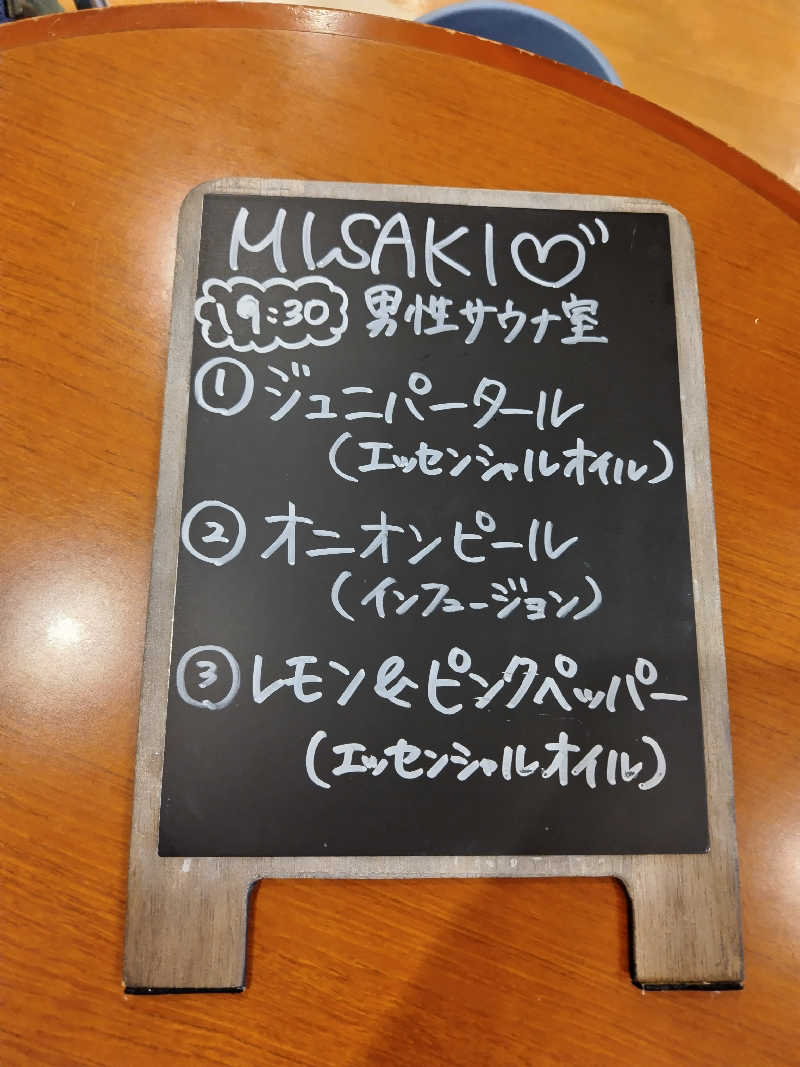 MISAKI♡
19:30 男性サウナ室
① ジュニパータール
(エッセンシャルオイル)
② オニオンピール
(インフュージョン)
③ レモン&ピンクペッパー
(エッセンシャルオイル)